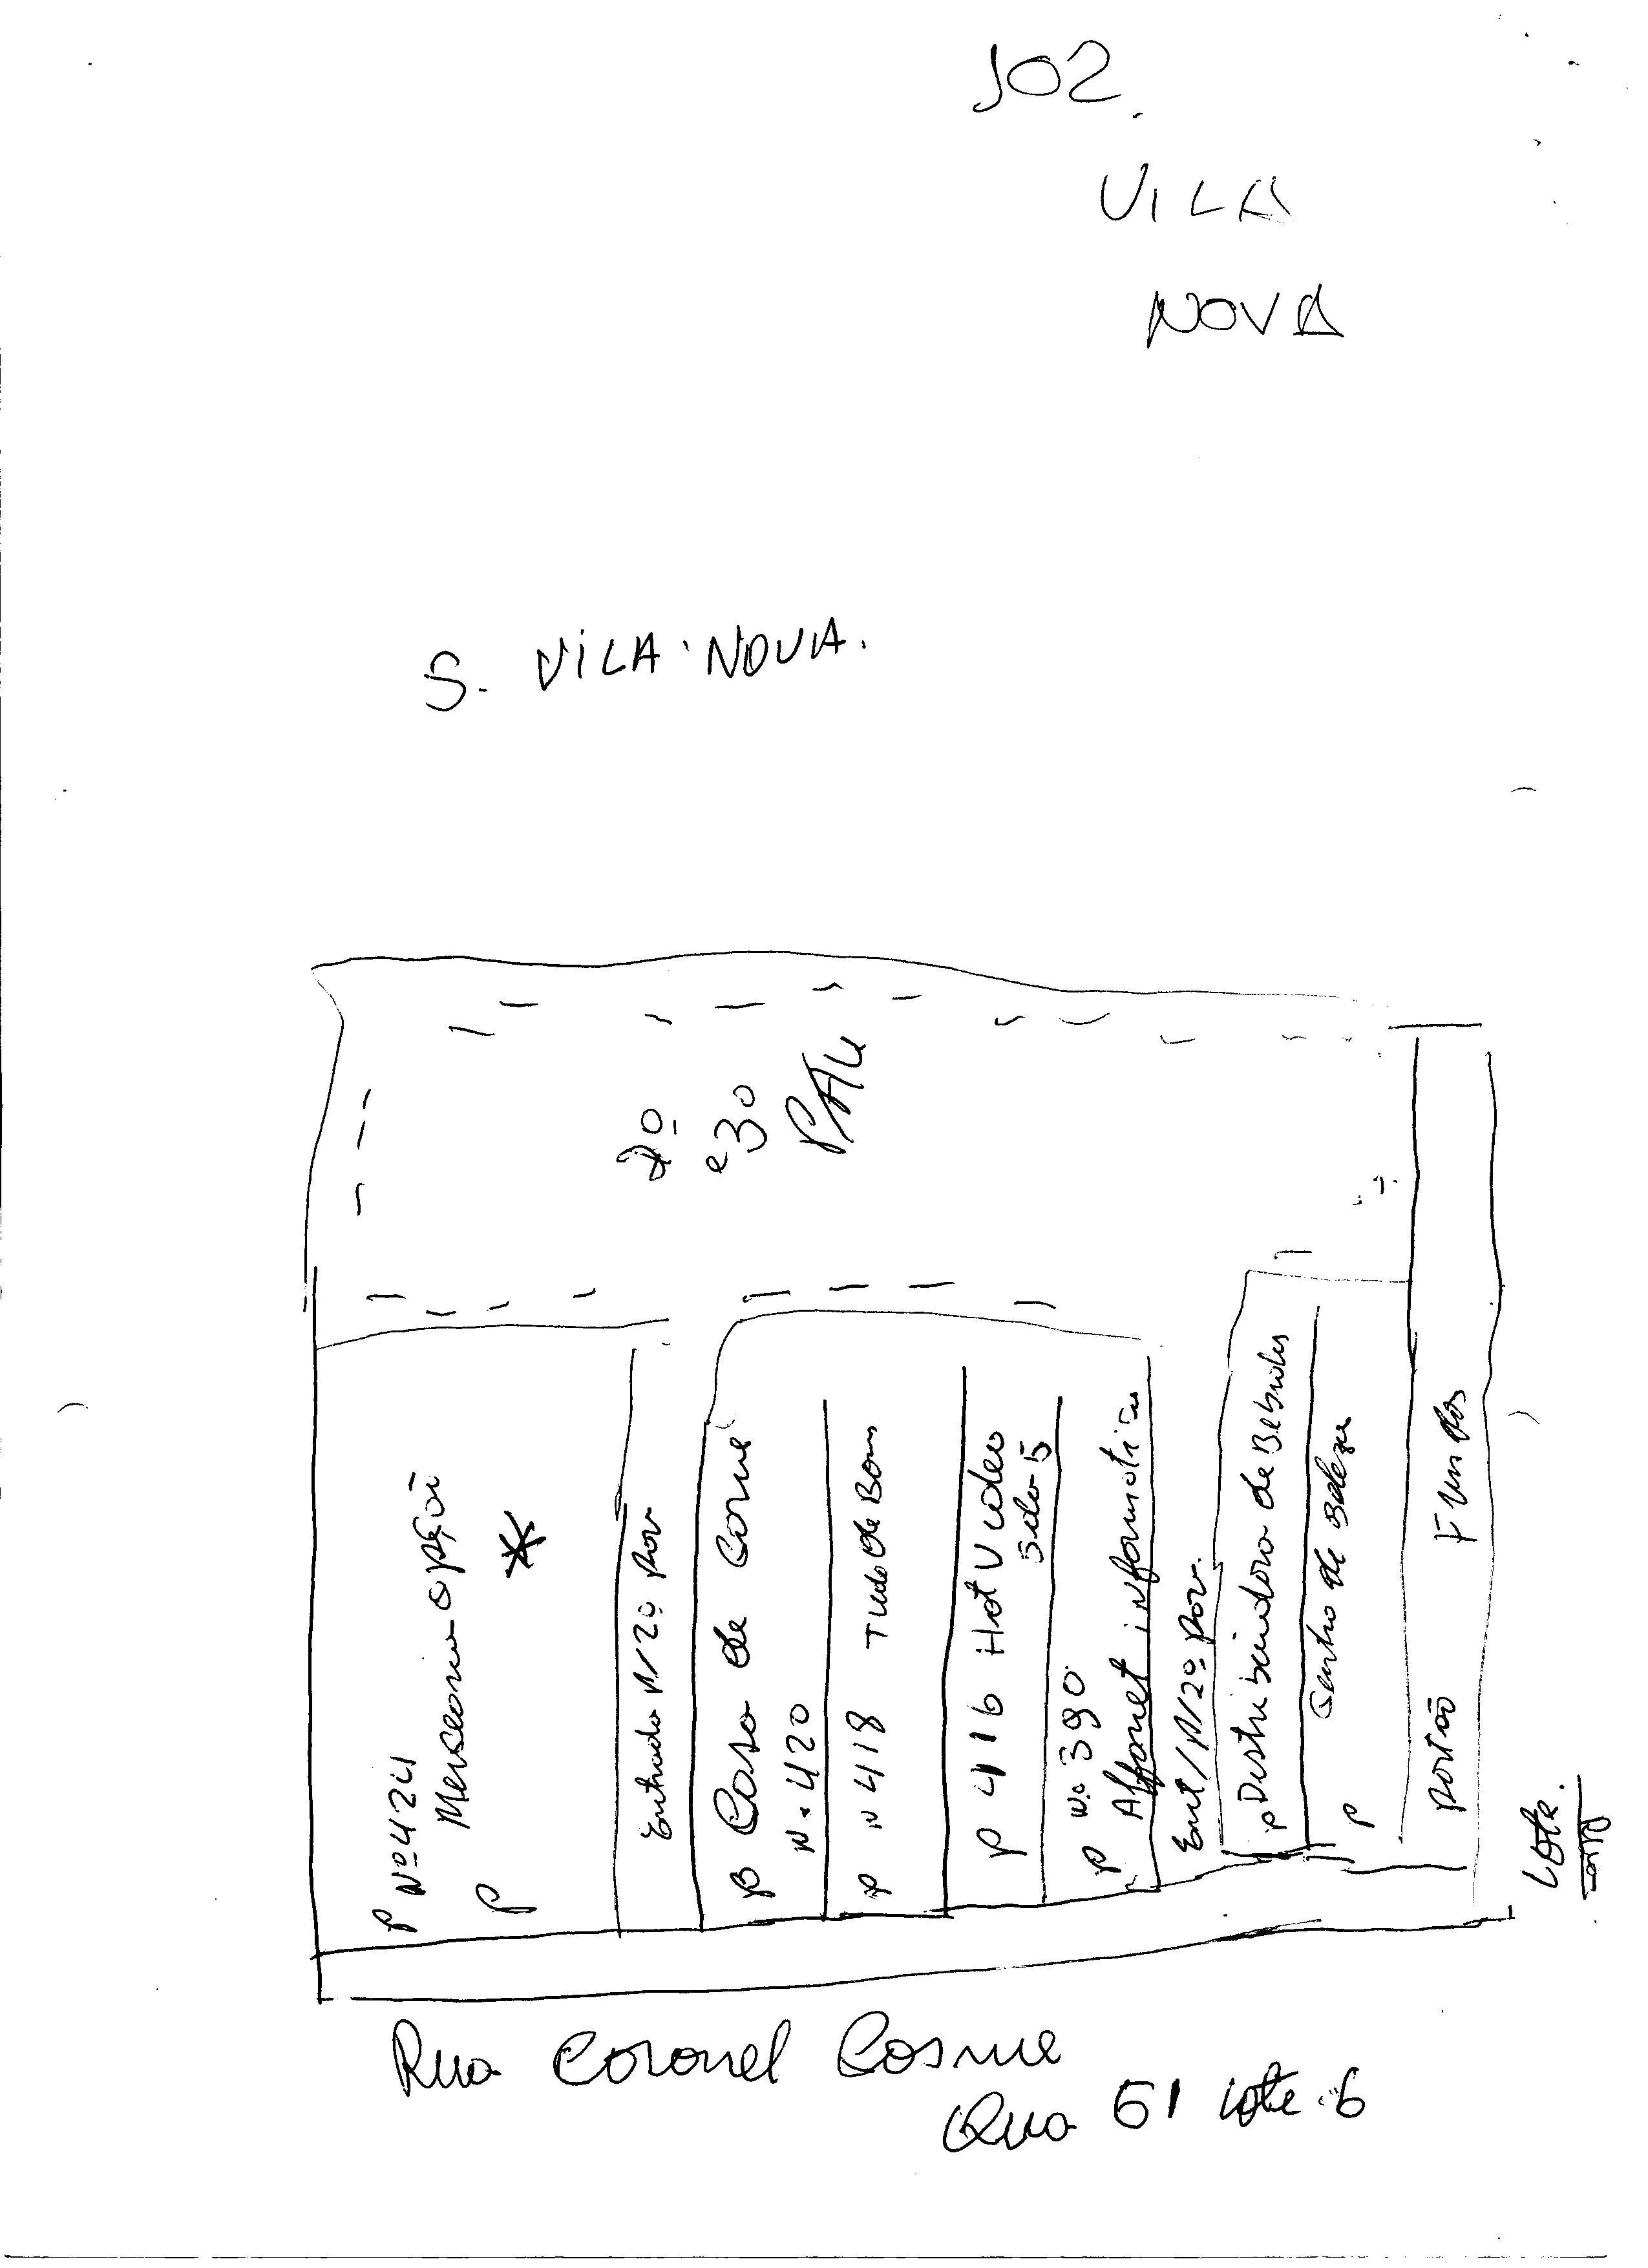 102.
VILA
NOVA
S. VILA NOVA.
2º
e 3º
PAV
P Nº 424
Mercearia opção
P
Entrada p/ 2º Pav
P Casa de Carne
N. 420
P N 418 Tudo de Bom
P 416 Hot Video
Sala 5
Nº 390
P Affonet informática
Ent / p/ 2º Pav.
P Distribuidora de Bebidas
P Centro de Beleza
Portão Fundos
Lote
Rua Coronel Cosme
Qua 51 Lote 6